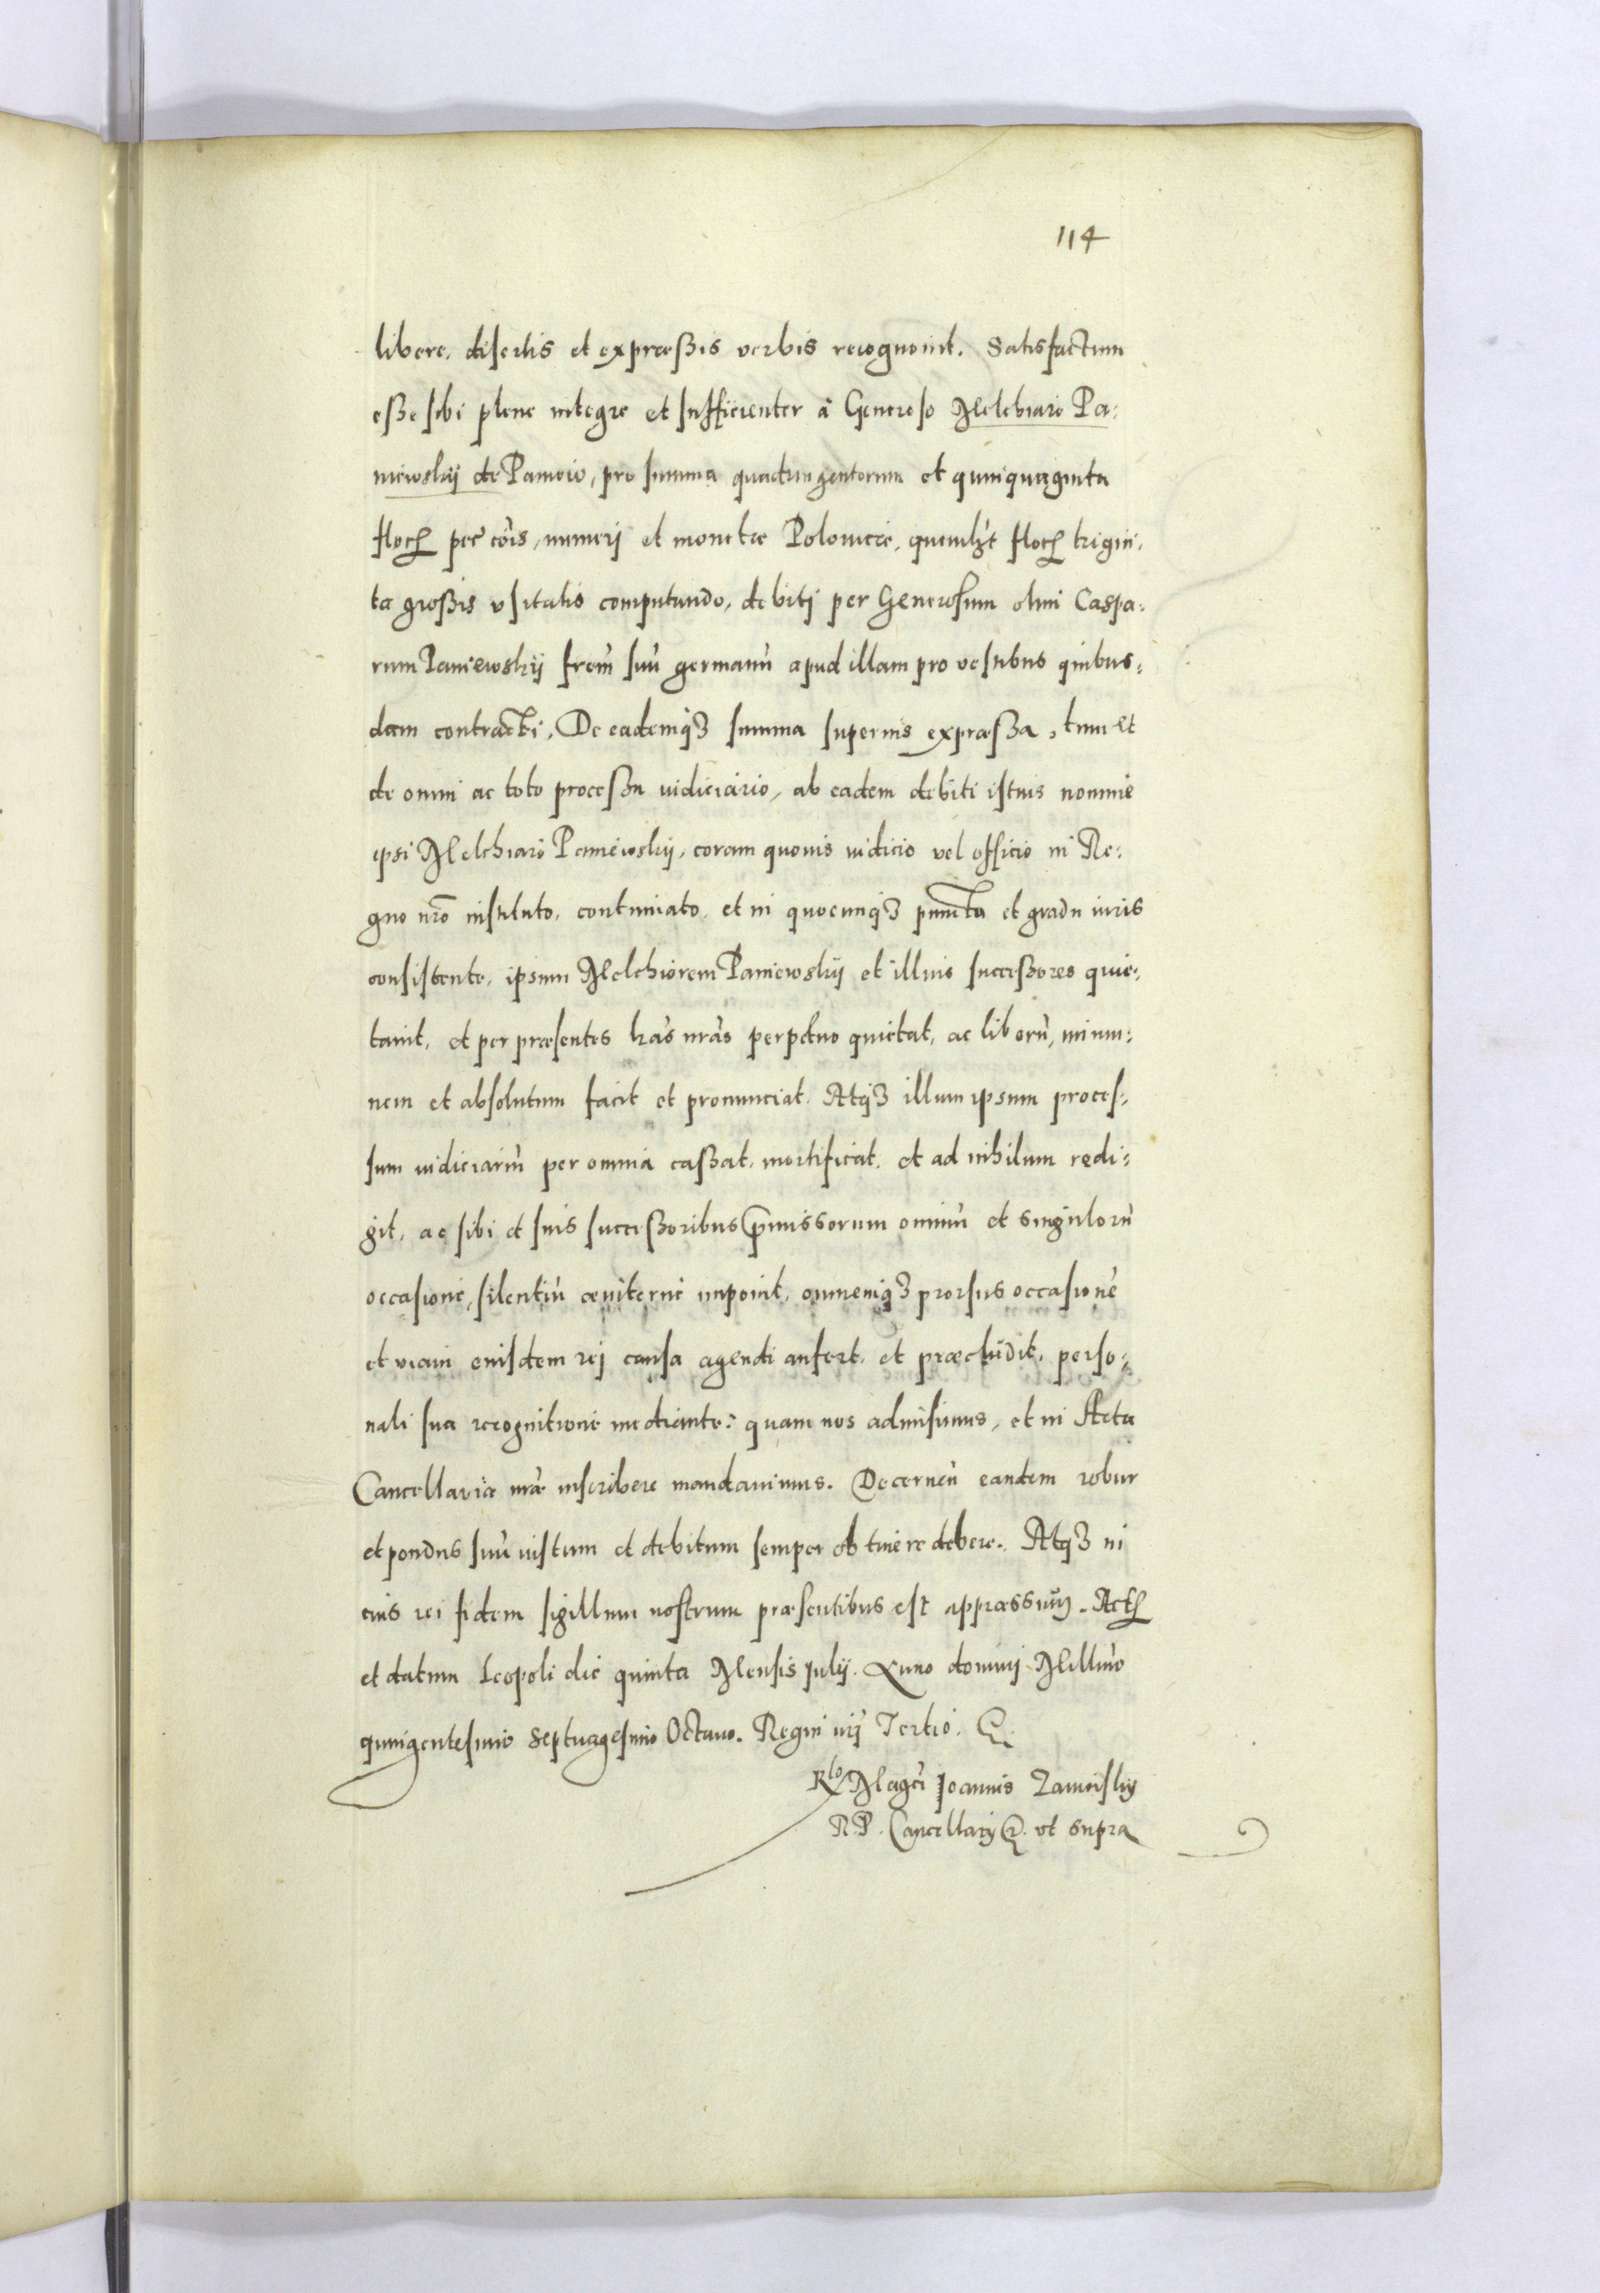 114
libere, disertis et expræssis verbis recognouit. Satisfactum
esse sibi plene integre et sufficienter à Generoso Melchiaro Pa-
niewskij de Paniow, pro summa quadringentorum et quinquaginta
floŕ pec̃ cõis, numeri et monetæ Polonicæ, quemlẓt floŕ trigin-
ta grossis vsitatis computando, debiti per Generosum olim Caspa-
rum Paniewskij frem̃ suũ germanũ apud illam pro vestibus quibus-
dam contracti, De eademqꝫ summa superius expræssa, tum et
de omni ac toto processu iudiciario, ab eadem debiti istius nomine
ipsi Melchiari Paniewskij, coram quouis iudicio vel officio in Re-
gno nr̃o instituto, continuato, et in quocunqꝫ puncto et gradu iuris
consistente, ipsum Melchiorem Paniewskij et illius successores quie-
tauit, et per præsentes lr̃as nr̃as perpetuo quietat, ac liberũ, immu-
nem et absolutum facit et pronunciat. Atqꝫ illum ipsum proces-
sum iudiciariũ per omnia cassat, mortificat, et ad nihilum redi-
git, ac sibi et suis successoribus p̃missorum omniũ et singulorũ
occasione, silentiũ æuiterne imponit, omnemqꝫ prorsus occasionẽ
et viam eiusdem rei causa agendi aufert, et præcludit, perso-
nali sua recognitione mediante: quam nos admisimus, et in Acta
Cancellariæ nr̃æ inscribere mandauimus. Decerneñ eandem robur
et pondus suũ iustum et debitum semper obtinere debere. Atqꝫ in
eius rei fidem sigillum nostrum præsentibus est appræssum. Act̃
et datum Leopoli die quinta Mensis Julij. Anno domini Millmo
quingentesimo Septuagesimo Octauo. Regni nr̃i Tertio. &
Rlo Magci Joannis Zamoiskij
R. P. Cancellarij &. vt supra